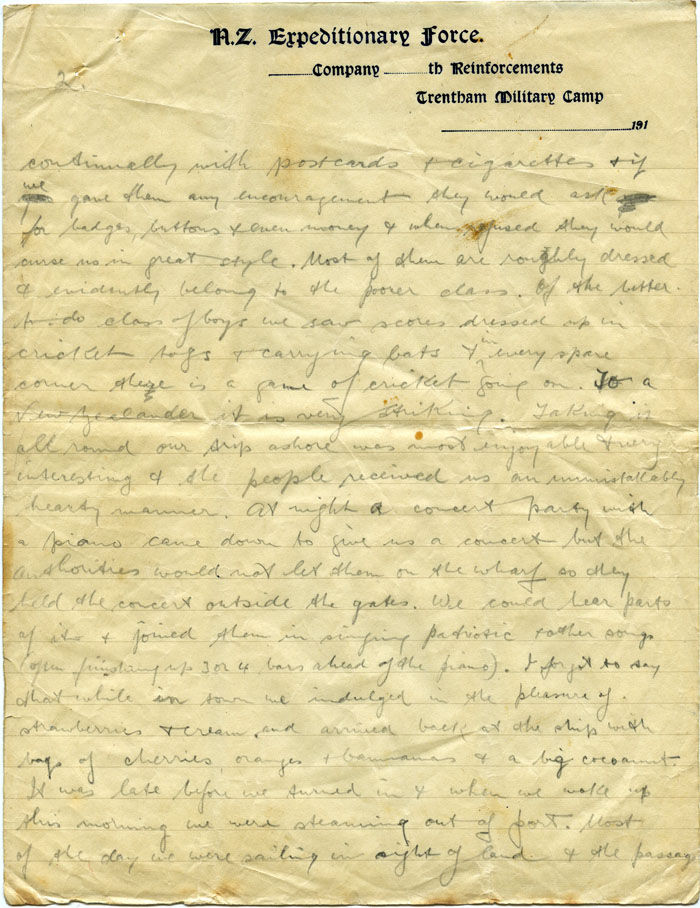 N.Z. Expeditionary Force.
Company th Reinforcements
Trentham Military Camp
191
2.
continually with postcards & cigarettes & if
we gave them any encouragement they would ask
for badges, buttons & even money & when refused they would
curse us in great style. Most of them are roughly dressed
& evidently belong to the poorer class. Of the better-
to-do class of boys we saw scores dressed up in
cricket togs & carrying bats & in every spare
corner there is a game of cricket going on. To a
New Zealander it is very striking. Taking it
all round our trip ashore was most enjoyable & very
interesting & the people received us in an unmistakably
hearty manner. At night a concert party with
a piano came down to give us a concert but the
authorities would not let them on the wharf so they
held the concert outside the gates. We could hear parts
of it & joined them in singing patriotic & other songs
(often finishing up 3 or 4 bars ahead of the piano). I forgot to say
that while in town we indulged in the pleasure of
strawberries & cream and arrived back at the ship with
bags of cherries, oranges & bannanas & a big cocoanut.
It was late before we turned in & when we woke up
this morning we were steaming out of port. Most
of the day we were sailing in sight of land & the passage